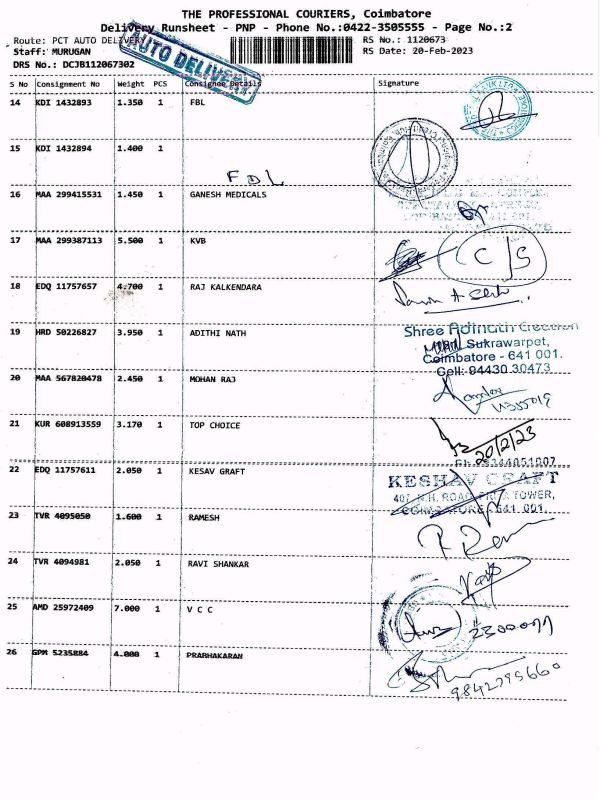 THE PROFESSIONAL COURIERS, Coimbatore
Delivery Runsheet - PNP - Phone No.:0422-3505555 - Page No.:2
Route: PCT AUTO DELIVERY RS No.: 1120673
Staff: MURUGAN RS Date: 20-Feb-2023
DRS No.: DCJB112067302
AUTO DELIVERY
S No Consignment No Weight PCS Consignee Details Signature
14 KDI 1432893 1.350 1 FBL
15 KDI 1432894 1.400 1
FDL
16 MAA 299415531 1.450 1 GANESH MEDICALS
17 MAA 299387113 5.500 1 KVB
C/S
18 EDQ 11757657 4.700 1 RAJ KALKENDARA
19 HRD 50226827 3.950 1 ADITHI NATH
Shree
Sukrawarpet,
Coimbatore - 641 001.
Cell: 94430 30473
20 MAA 567820478 2.450 1 MOHAN RAJ
21 KUR 608913559 3.170 1 TOP CHOICE
20/2/23
22 EDQ 11757611 2.050 1 KESAV GRAFT
KESHAV CRAFT
407, N.H. ROAD, TOWER,
COIMBATORE - 641 001.
23 TVR 4095050 1.600 1 RAMESH
24 TVR 4094981 2.050 1 RAVI SHANKAR
25 AMD 25972409 7.000 1 V C C
26 GPM 5235884 4.000 1 PRABHAKARAN
9842795660